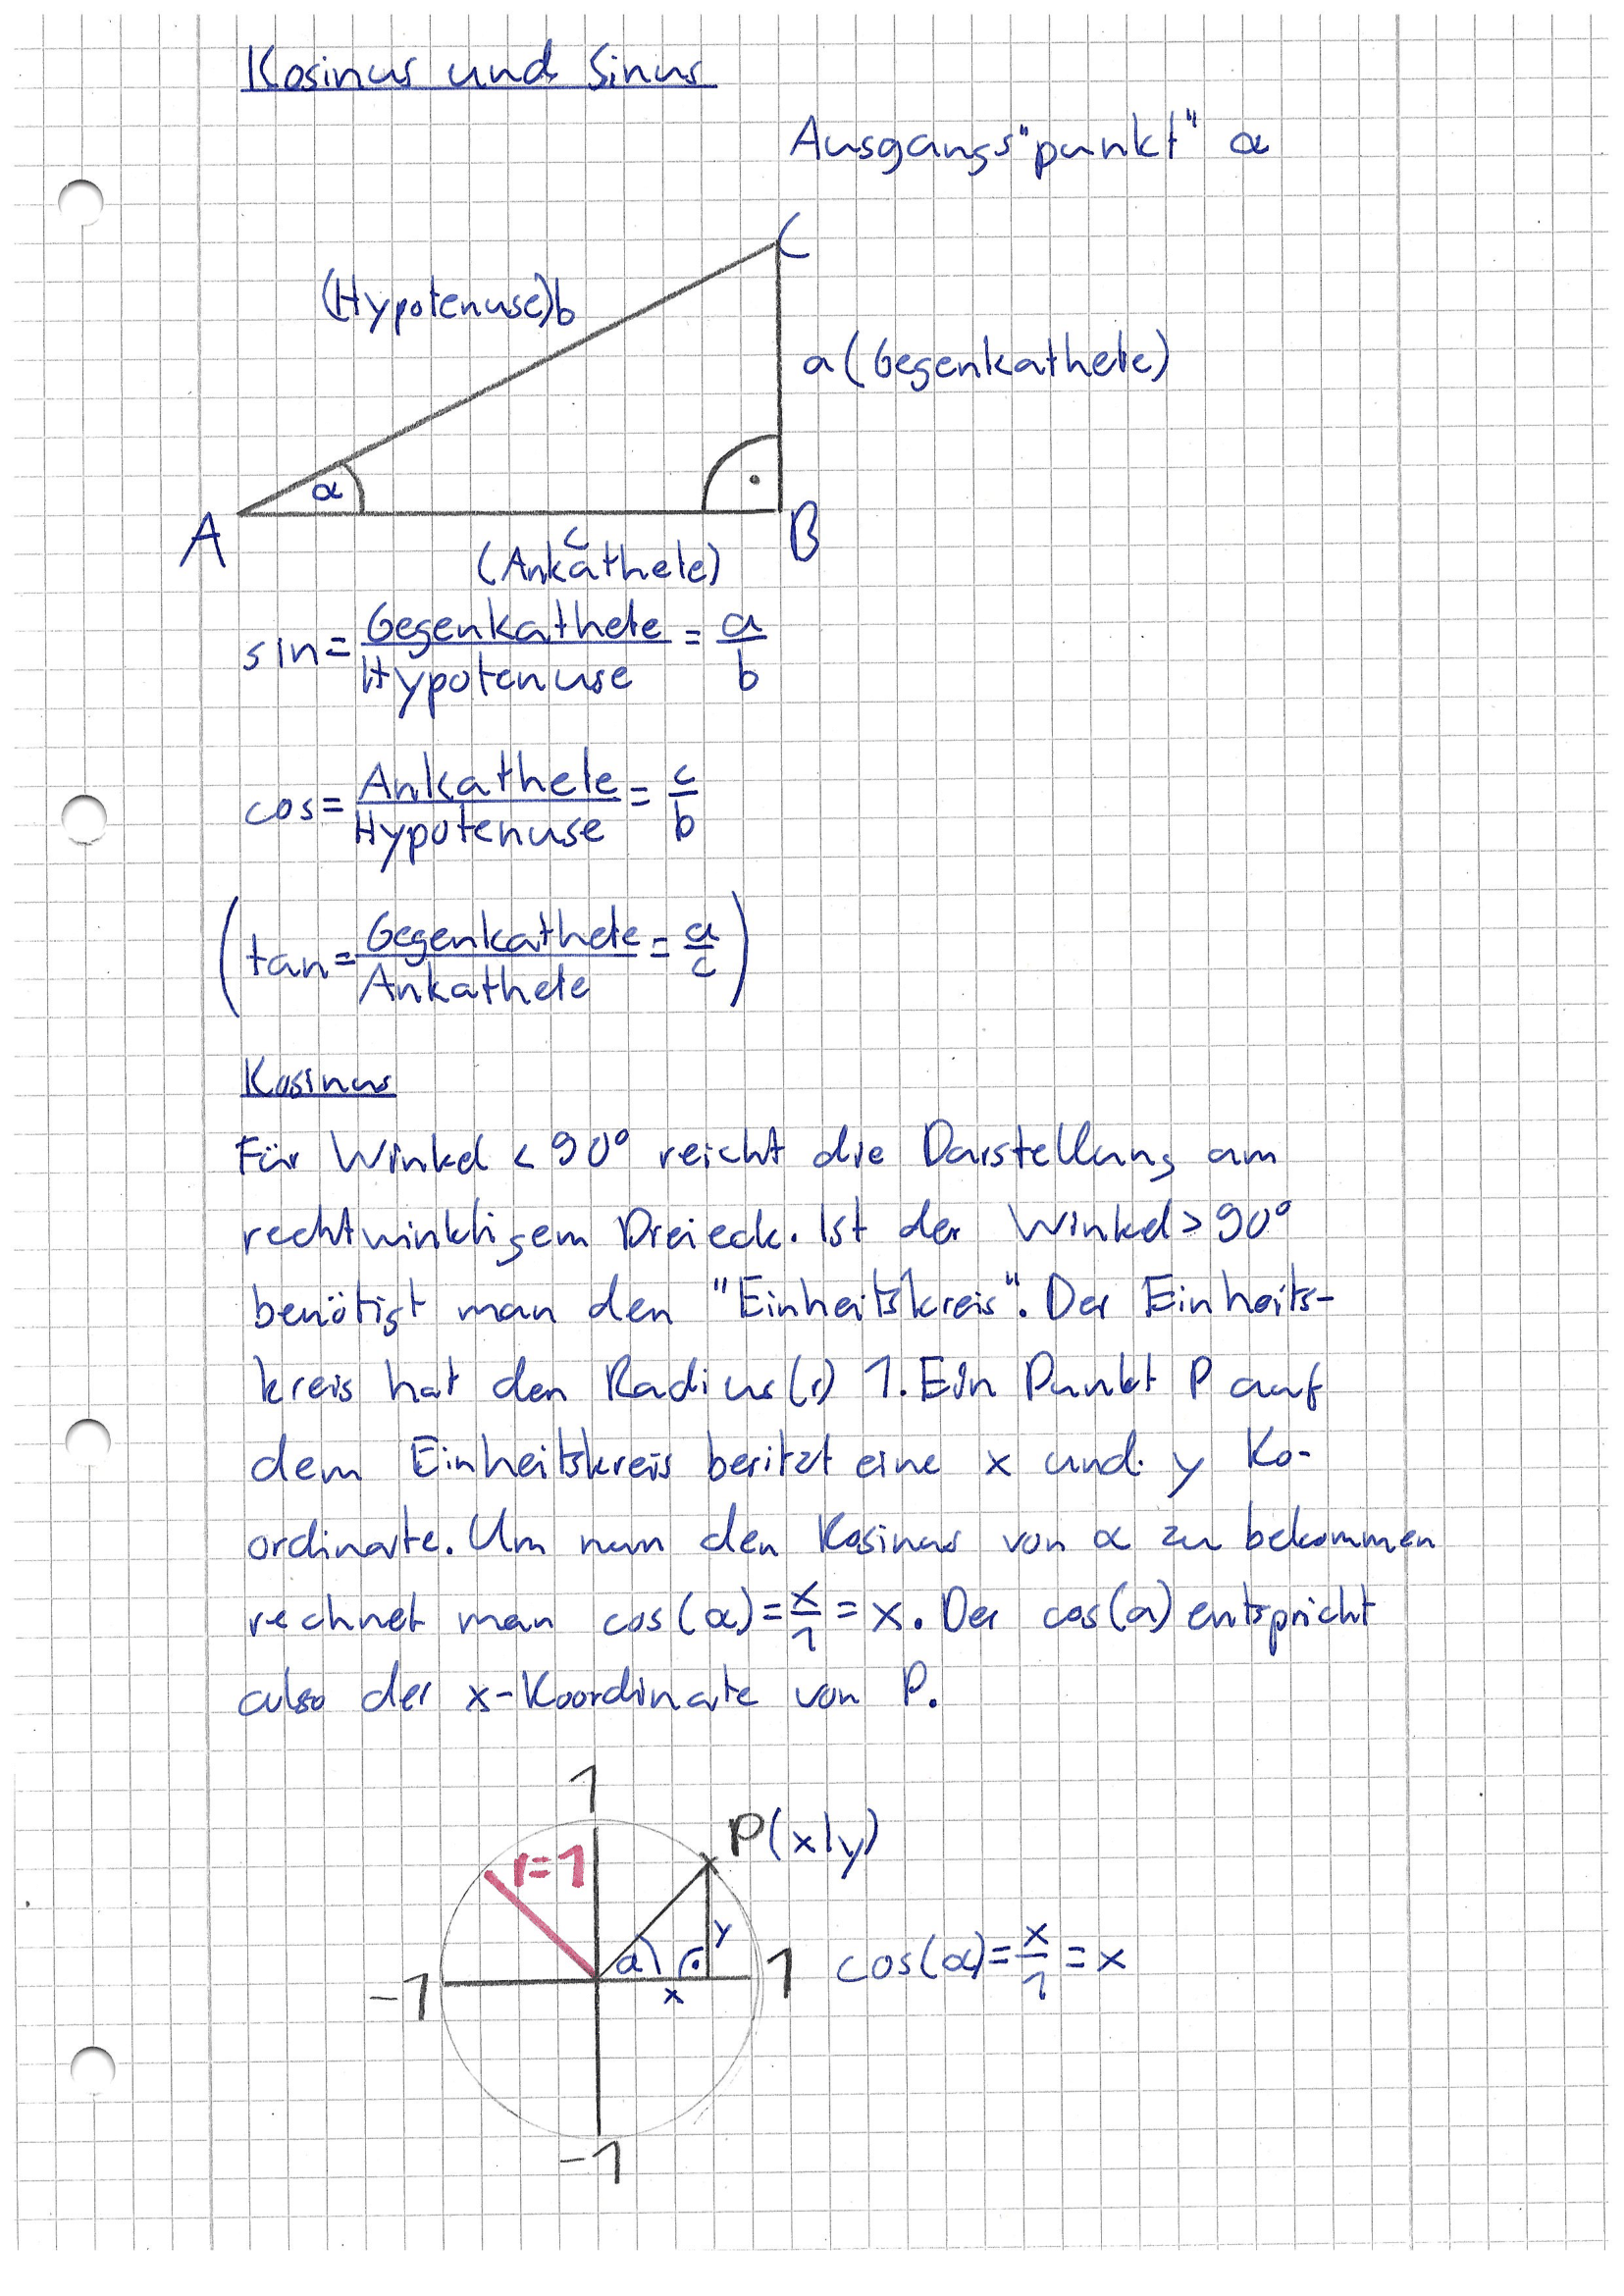 Kosinus und Sinus
Ausgangs"punkt" α
C
(Hypotenuse)b
a (Gegenkathete)
α
A
B
c
(Ankathete)
sin = Gegenkathete / Hypotenuse = a / b
cos = Ankathete / Hypotenuse = c / b
(tan = Gegenkathete / Ankathete = a / c)
Kosinus
Für Winkel < 90° reicht die Darstellung am
rechtwinkligem Dreieck. Ist der Winkel > 90°
benötigt man den "Einheitskreis". Der Einheits-
kreis hat den Radius (r) 1. Ein Punkt P auf
dem Einheitskreis besitzt eine x und y Ko-
ordinate. Um nun den Kosinus von α zu bekommen
rechnet man cos(α) = x/1 = x. Der cos(α) entspricht
also der x-Koordinate von P.
1
P(x|y)
r=1
y
α
-1
1
x
cos(α) = x/1 = x
-1